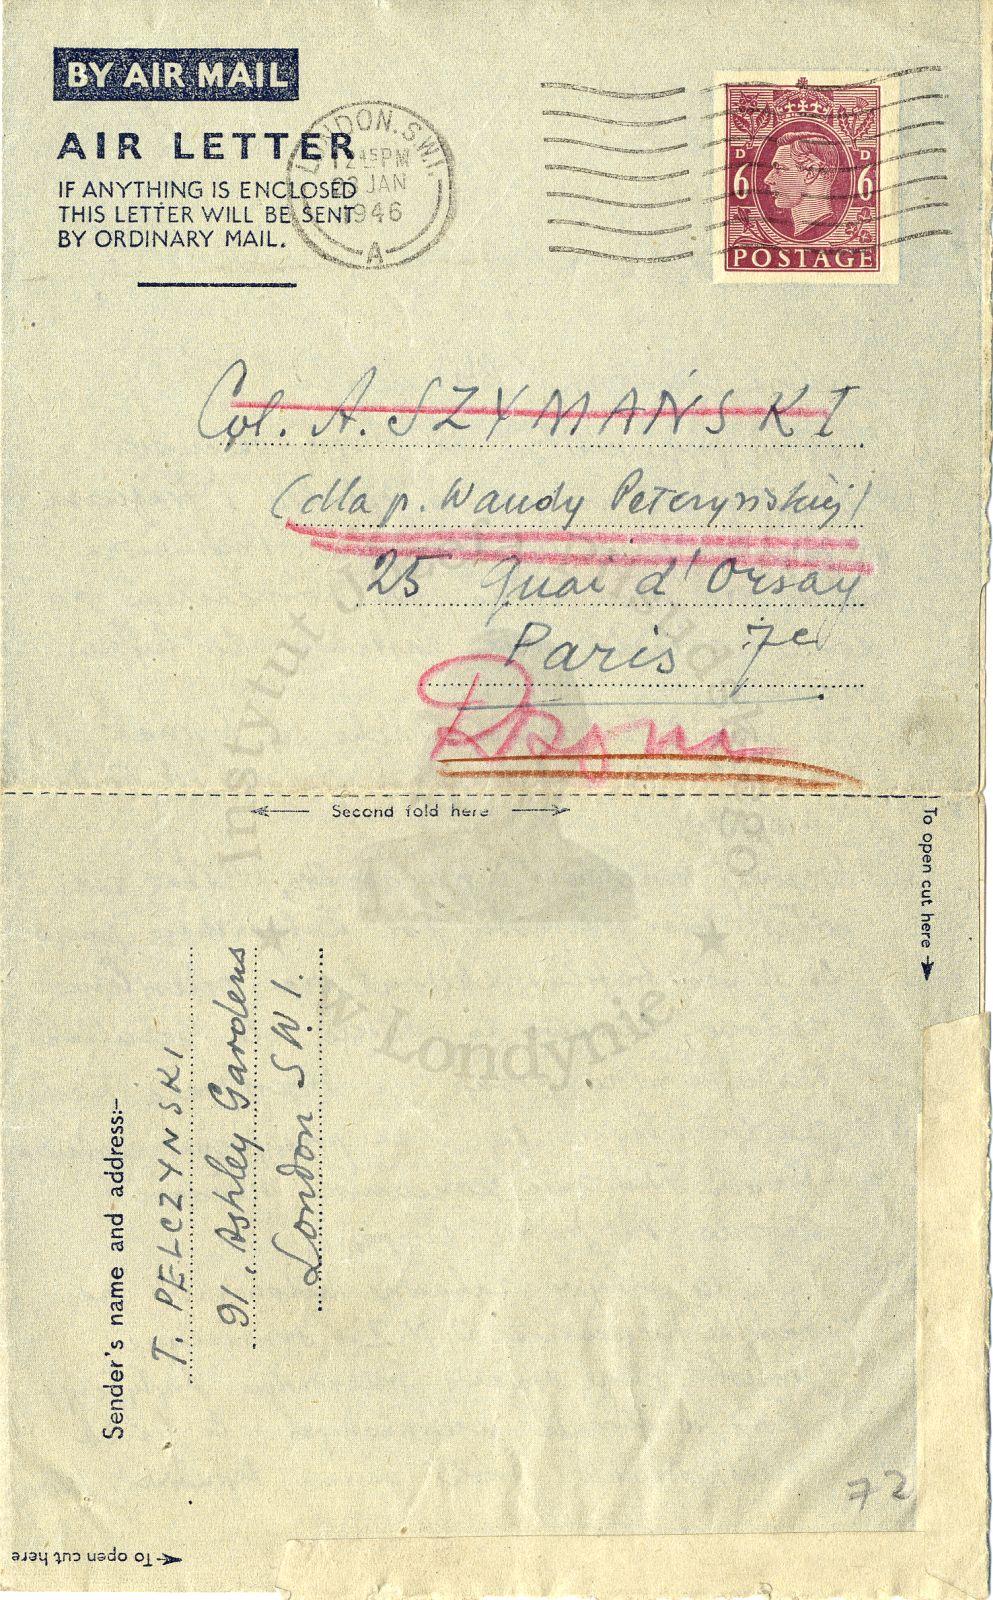 BY AIR MAIL
AIR LETTER
IF ANYTHING IS ENCLOSED
THIS LETTER WILL BE SENT
BY ORDINARY MAIL.
LONDON. S.W.1.
12 45 PM
23 JAN
1946
A
6D 6D
POSTAGE
Col. A. SZYMAŃSKI
(dla p. Wandy Pełczyńskiej)
25 Quai d'Orsay
Paris 7e
Second fold here
To open cut here
Sender's name and address:-
T. PEŁCZYŃSKI
91. Ashley Gardens
London S.W.1.
72
To open cut here
Instytut Józefa Piłsudskiego
w Londynie